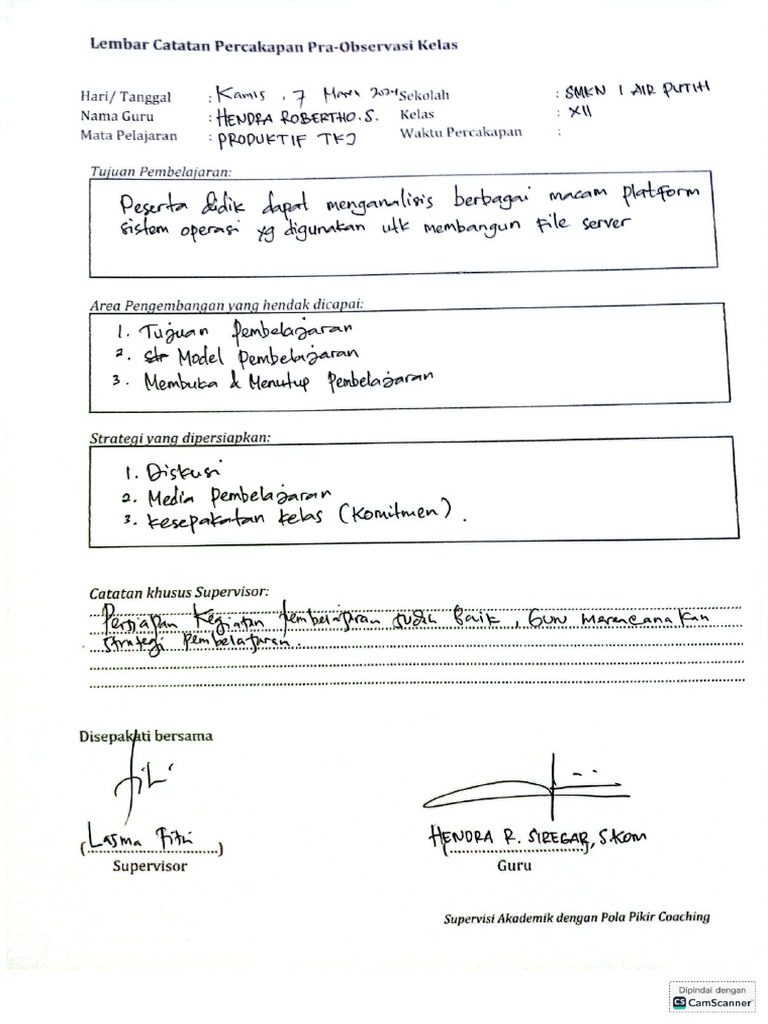 Lembar Catatan Percakapan Pra-Observasi Kelas
Hari/ Tanggal : Kamis, 7 Maret 2024 Sekolah : SMKN 1 AIR PUTIH
Nama Guru : HENDRA ROBERTHO.S. Kelas : XII
Mata Pelajaran : PRODUKTIF TKJ Waktu Percakapan :
Tujuan Pembelajaran:
Peserta didik dapat menganalisis berbagai macam platform
sistem operasi yg digunakan utk membangun File server
Area Pengembangan yang hendak dicapai:
1. Tujuan Pembelajaran
2. Model Pembelajaran
3. Membuka & Menutup Pembelajaran
Strategi yang dipersiapkan:
1. Diskusi
2. Media Pembelajaran
3. Kesepakatan kelas (Komitmen).
Catatan khusus Supervisor:
Persiapan Kegiatan Pembelajaran sudah Baik, Guru Merencanakan
strategi Pembelajaran.
Disepakati bersama
(Lasma Fitri)
HENDRA R. SIREGAR, S.Kom
Supervisor
Guru
Supervisi Akademik dengan Pola Pikir Coaching
Dipindai dengan
CS CamScanner